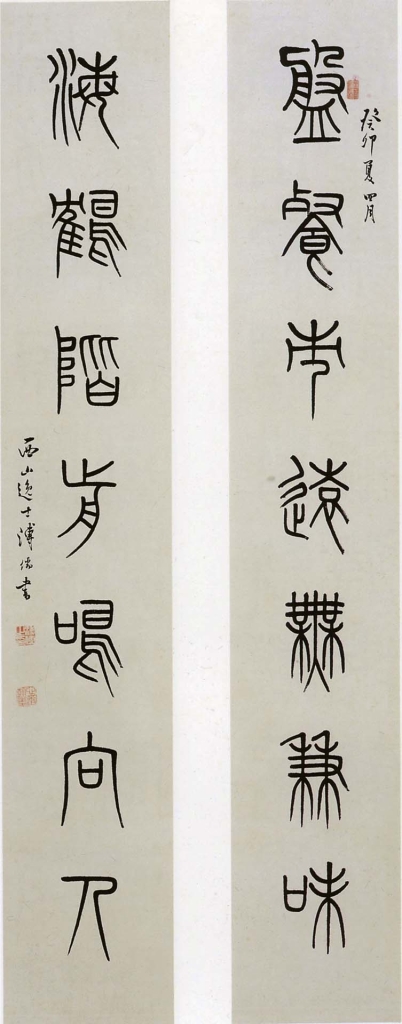 癸卯夏四月
盤餐市遠無兼味
海鶴階前鳴向人
西山逸士溥儒書